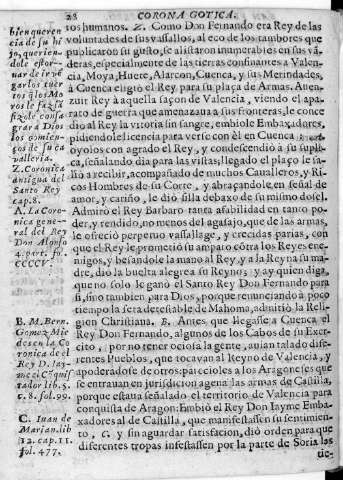 28 CORONA GOTICA.
tos humanos. Z. Como Don Fernando era Rey de las
voluntades de sus vassallos, al eco de los tambores que
publicaron su gusto, se alistaron inumerables en sus vã-
deras, especialmente de las tierras confinantes a Valen-
cia, Moya, Huete, Alarcon, Cuenca, y sus Merindades,
à Cuenca eligiò el Rey para su plaça de Armas. Aven-
zuit Rey à aquella saçon de Valencia, viendo el apa-
rato de guerra que amenazaua a sus fronteras, le conce
diò al Rey la vitoria sin sangre, embiole Embaxadores,
pidiendole licencia para verse con èl en Cuenca:
oyolos con agrado el Rey, y condescendiò a su supli-
ca, señalando dia para las vistas; llegado el plaço le sa-
liò a recibir, acompañado de muchos Caualleros, y Ri-
cos Hombres de su Corte, y abraçandole, en señal de
amor, y cariño, le diò silla debaxo de su mismo dosel.
Admirò el Rey Barbaro tanta afabilidad en tanto po-
der, y rendido, no menos del agasajo, que de las armas,
le ofreciò perpetuo vassallage, y crecidas parias, con
que el Rey le prometiò su amparo cõtra los Reyes ene-
migos, y besandole la mano al Rey, y a la Reyna su ma-
dre, diò la buelta alegre a su Reyno; y ay quien diga,
que no solo le ganò el Santo Rey Don Fernando para
si, sino tambien para Dios, porque renunciando à poco
tiempo la seta detestable de Mahoma, admitiò la Reli-
gion Christiana. B. Antes que llegasse a Cuenca el
Rey Don Fernando, algunos de los Cabos de su Exer-
cito, por no tener ociosa la gente, auian talado dife-
rentes Pueblos, que tocavan al Reyno de Valencia, y
apoderadose de otros: pareciòles a los Aragoneses que
se entrauan en jurisdicion agena las armas de Castilla,
porque estaua señalado el territorio de Valencia para
conquista de Aragon: Embiò el Rey Don Iayme Emba-
xadores al de Castilla, que manifestassen su sentimien-
to, C. y sin aguardar satisfacion, diò orden para que
diferentes tropas infestassen por la parte de Soria las
tie-
bien queren
cia de su hi
jo, querien-
dole estor-
uar de ir ve
Z. Coronica
antigua del
Santo Rey
cap. 8.
A. La Coro
nica gene-
ral del Rey
Don Alonso
4. part. fo.
CCCCV.
B. M. Bern.
Gomez Mie
des en la Co
ronica de el
Rey D. Iay-
me el Cõqui
stador lib. 5.
c. 8. fol. 99.
C. Iuan de
Marian. lib
12. cap. 11.
fol. 477.